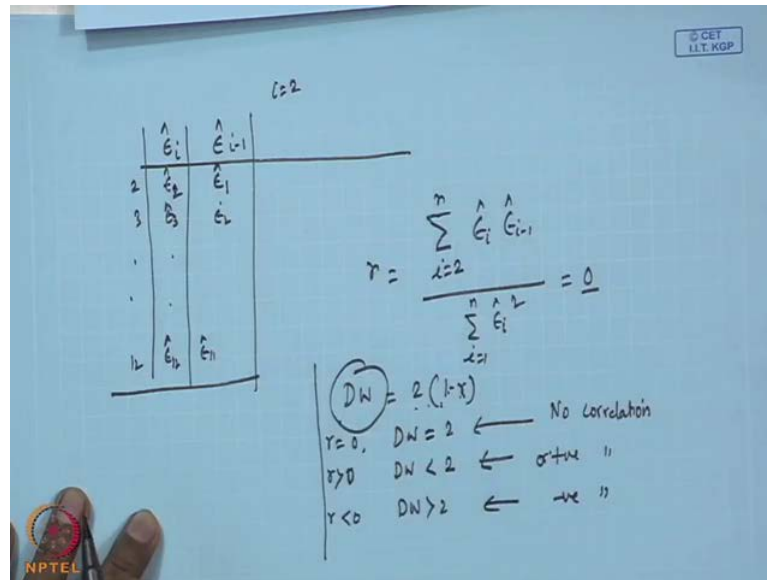 © CET
I.I.T. KGP
i=2
ε̂i ε̂i-1
2 ε̂2 ε̂1
3 ε̂3 ε̂2
. .
. .
12 ε̂12 ε̂11
r = ∑_{i=2}^{n} ε̂i ε̂i-1 / ∑_{i=1}^{n} ε̂i² = 0
DW = 2(1-r)
r=0, DW = 2 ← No correlation
r>0 DW < 2 ← +ive "
r<0 DW > 2 ← -ve "
NPTEL